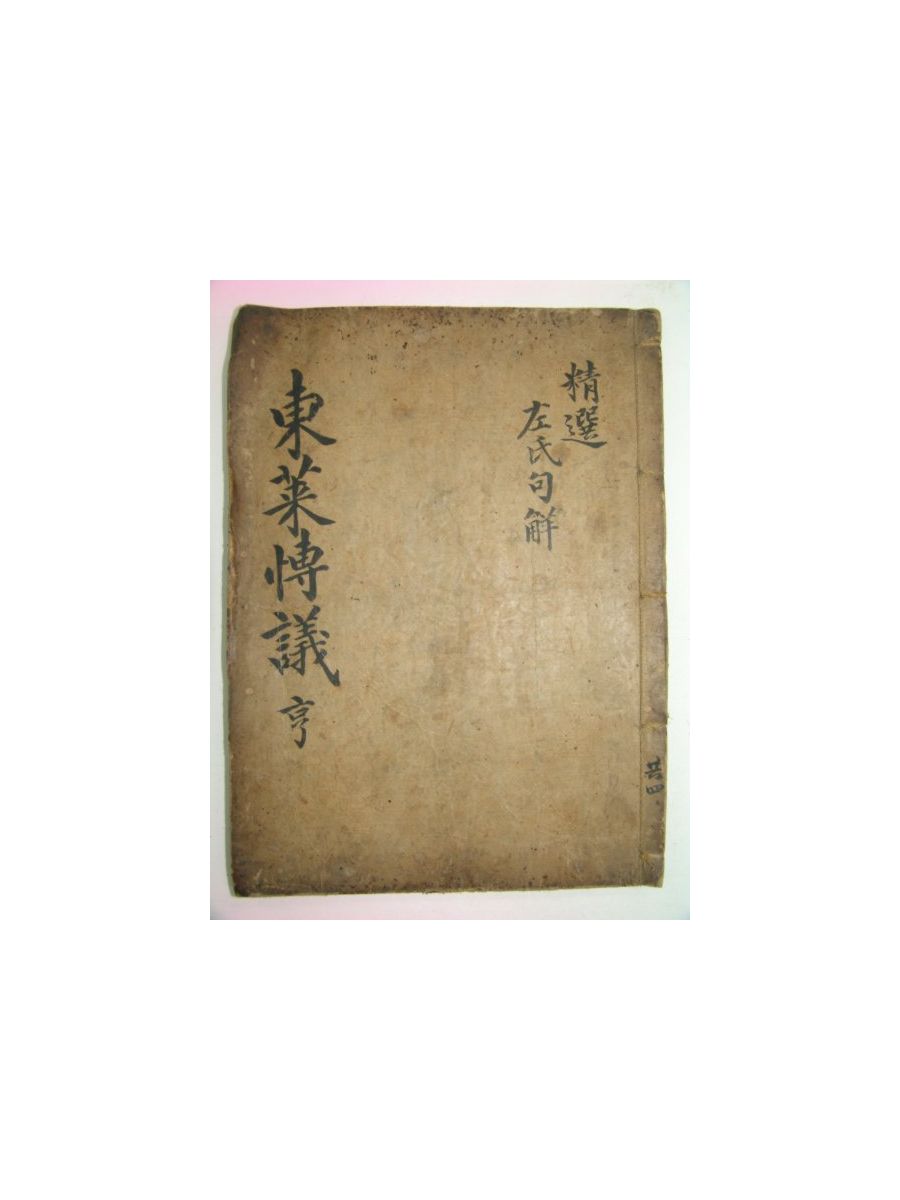 精選
左氏句解
東萊愽議 亨
共四